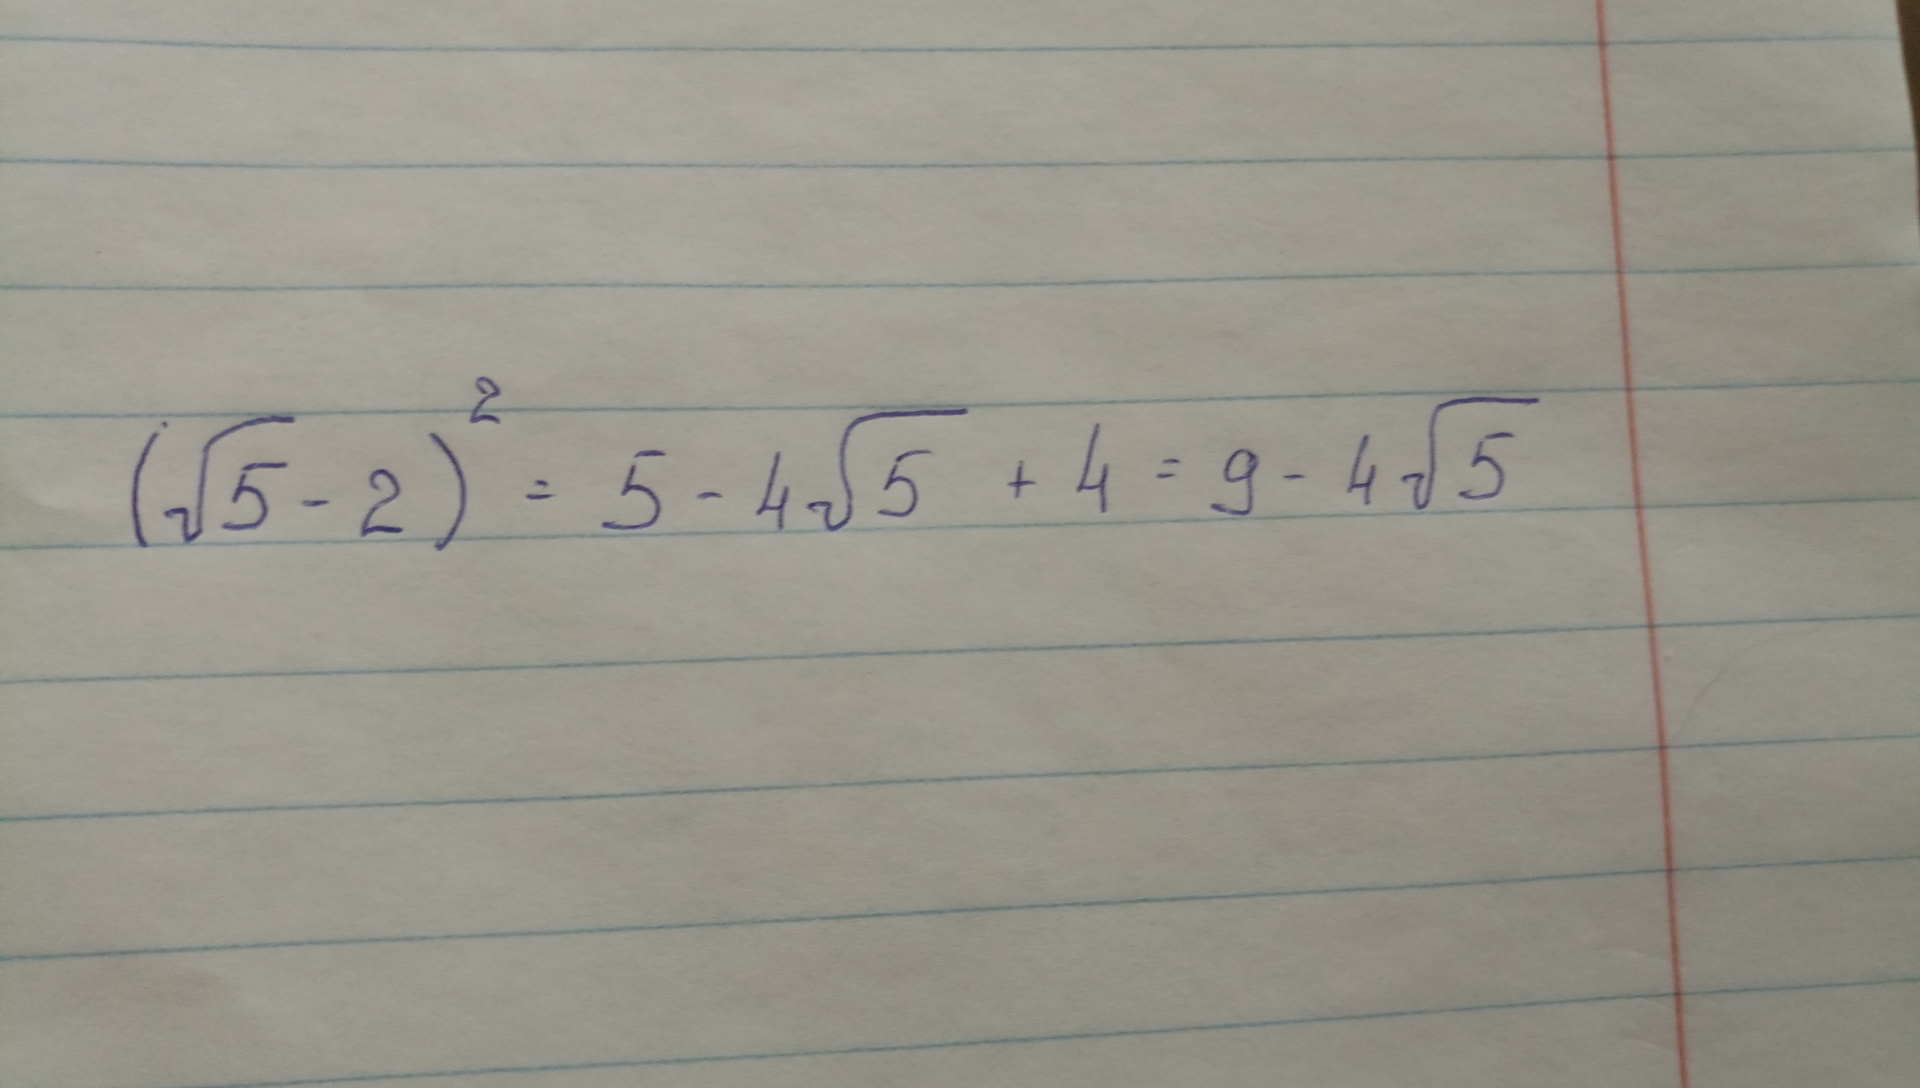 (√5 - 2)² = 5 - 4√5 + 4 = 9 - 4√5